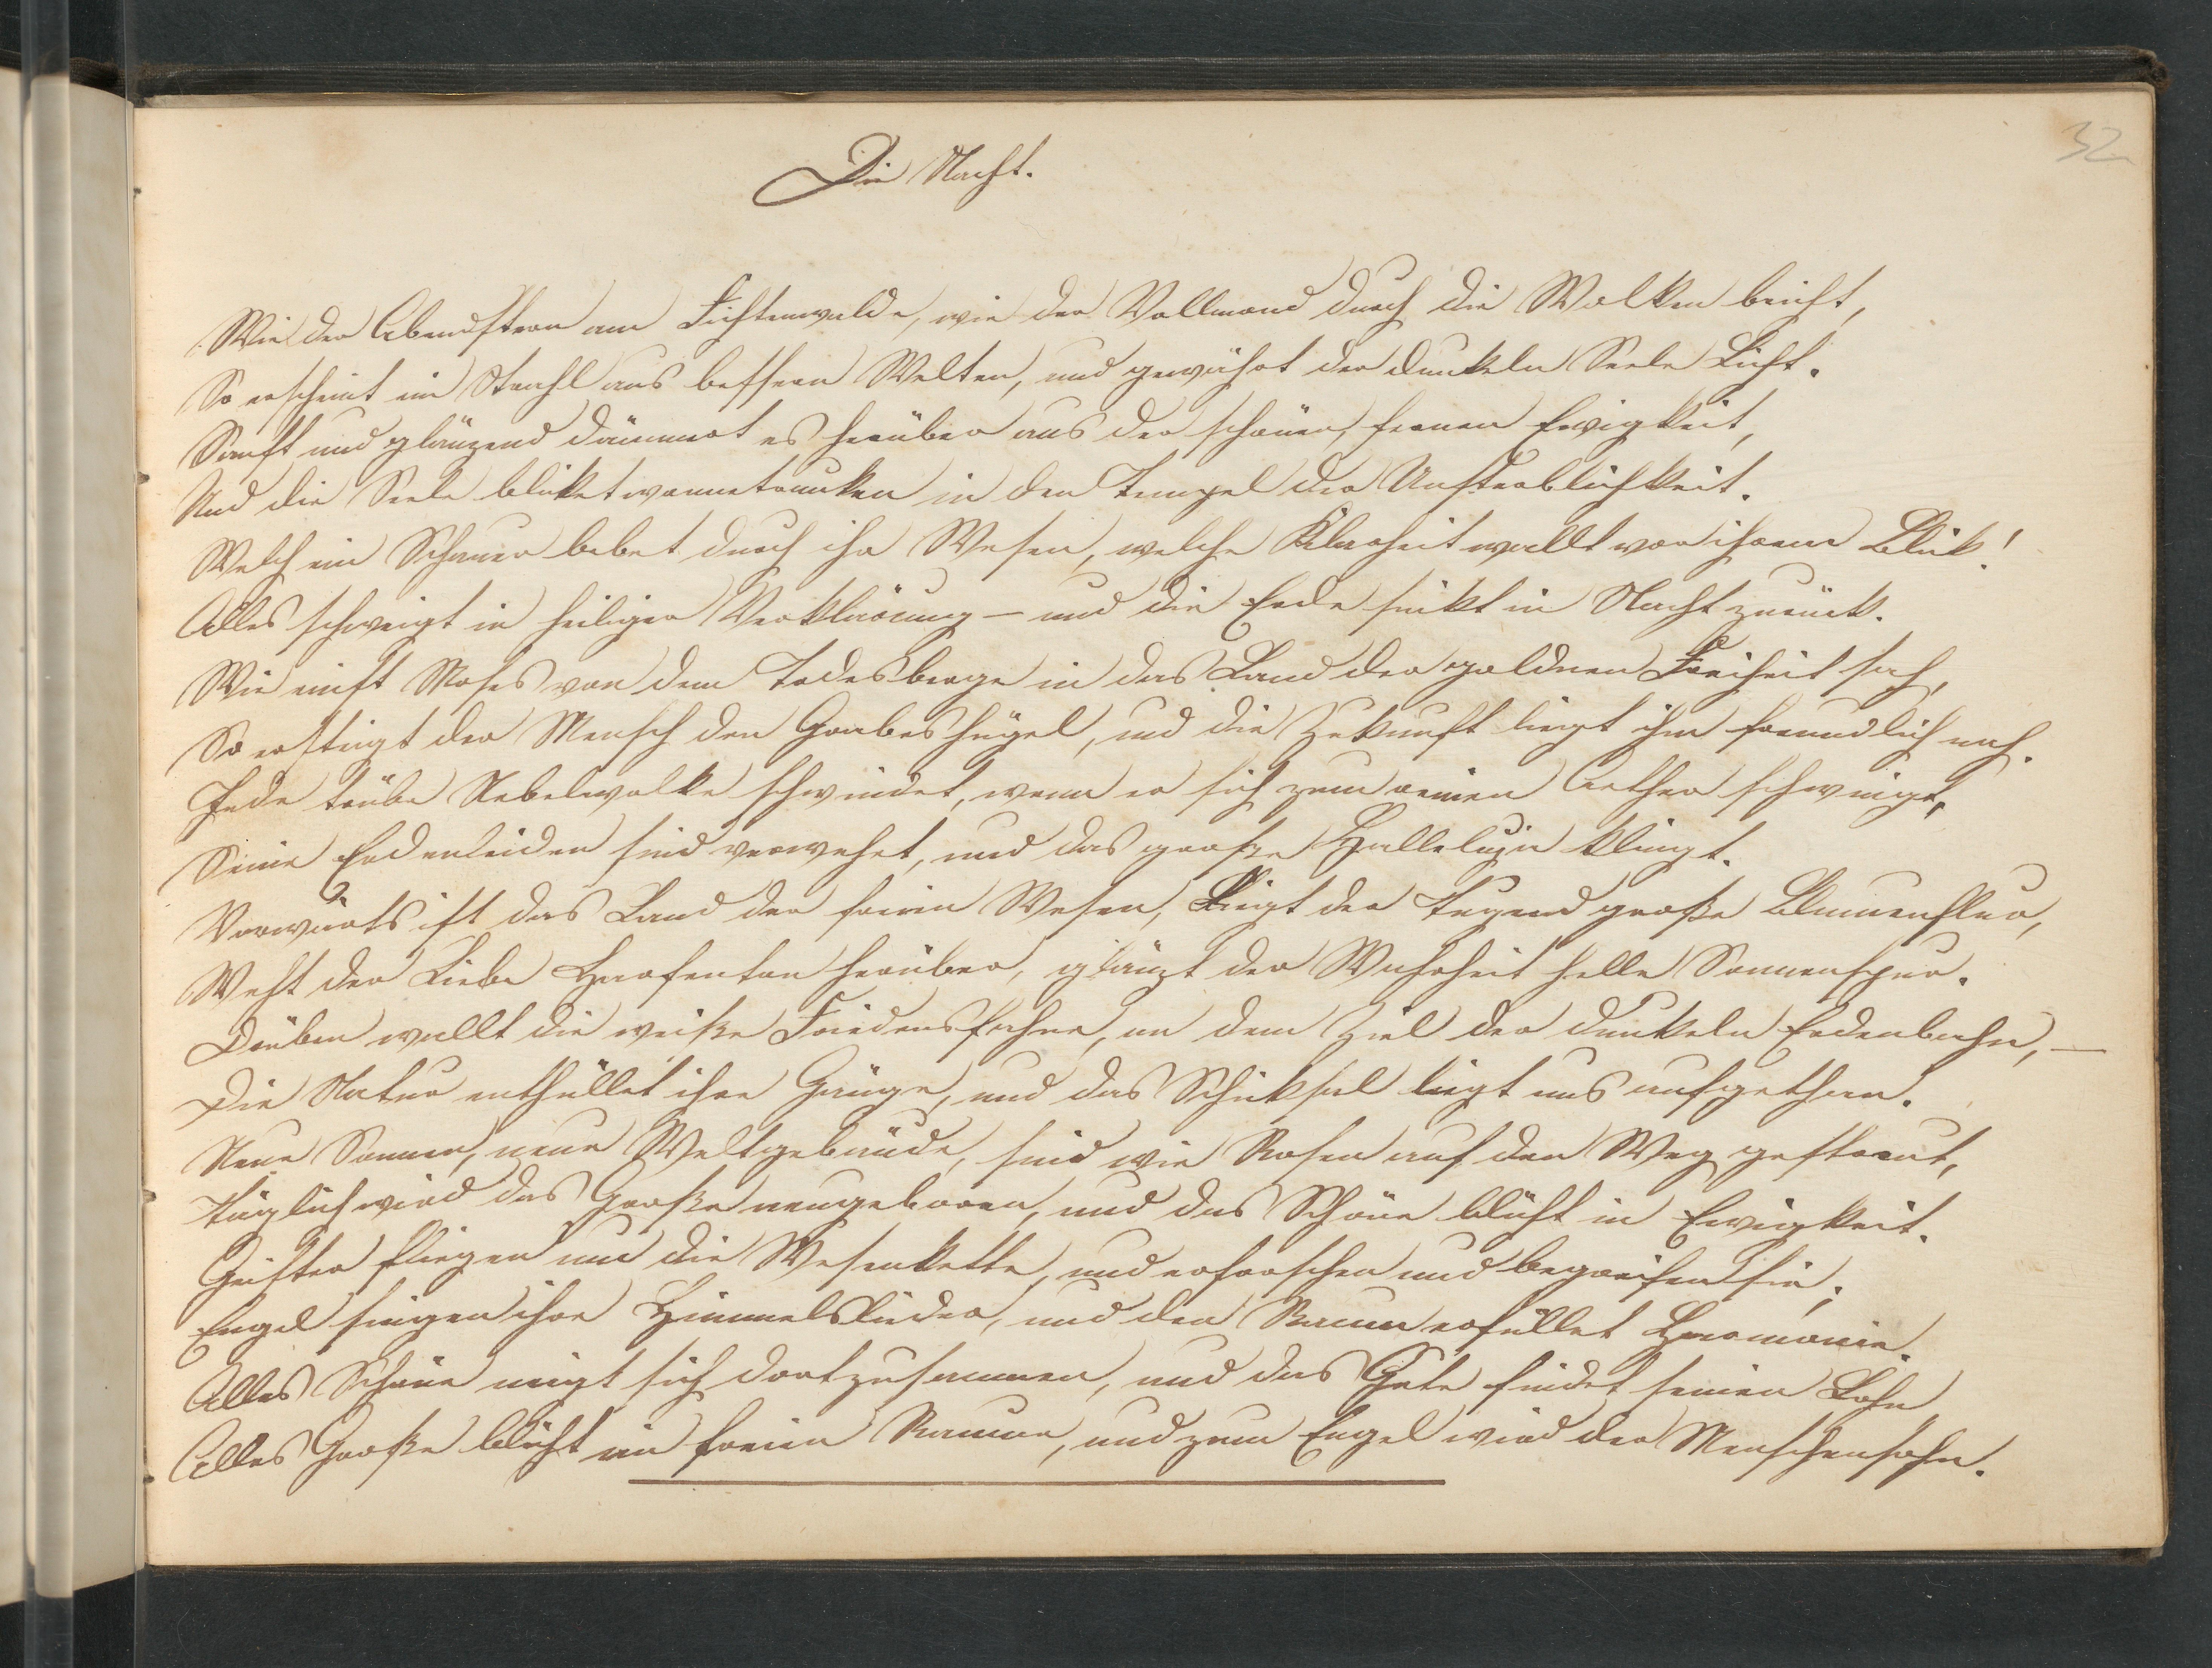 32
Die Nacht.
Wie der Abendstern am Fichtenwalde, wie der Vollmond durch die Wolken bricht,
So erscheint ein Strahl aus bessern Welten, und gewährt der dunkeln Seele Licht.
Sanft und glänzend dämmert es herüber aus der schönen, fernen Ewigkeit,
Und die Seele blicket wonnetrunken in den Tempel der Unsterblichkeit.
Welch ein Schauer bebet durch ihr Wesen, welche Klarheit wallt vor ihrem Blick!
Alles schweigt in heiliger Verklärung – und die Erde sinkt in Nacht zurück.
Wie einst Moses von dem Todesberge in das Land der goldnen Freiheit sah,
So ersteigt der Mensch den Grabeshügel, und die Zukunft liegt ihm freundlich nah.
Jede trübe Nebelwolke schwindet, wenn er sich zum reinen Aether schwingt,
Seine Erdenleiden sind verwehet, und das große Halleluja klingt.
Vorwärts ist das Land der freien Wesen, Liegt der Tugend große Blumenflur,
Weht der Liebe Harfenton herüber, glänzt der Wahrheit helle Sonnenspur.
Drüben wallt die weiße Friedensfahne, an dem Ziel der dunkeln Erdenbahn, –
Die Natur enthüllet ihre Gänge, und das Schicksal liegt uns aufgethan.
Neue Sonnen, neue Weltgebäude, sind wie Rosen auf den Weg gestreut,
Täglich wird das Große neugeboren, und das Schöne blüht in Ewigkeit.
Geister fliegen um die Wesenkette, und erforschen und begreifen sie;
Engel singen ihre Himmelslieder, und den Raum erfüllet Harmonie.
Alles Schöne neigt sich dort zusammen, und das Gute findet seinen Lohn
Alles Große blüht im freien Raume, und zum Engel wird der Menschensohn.